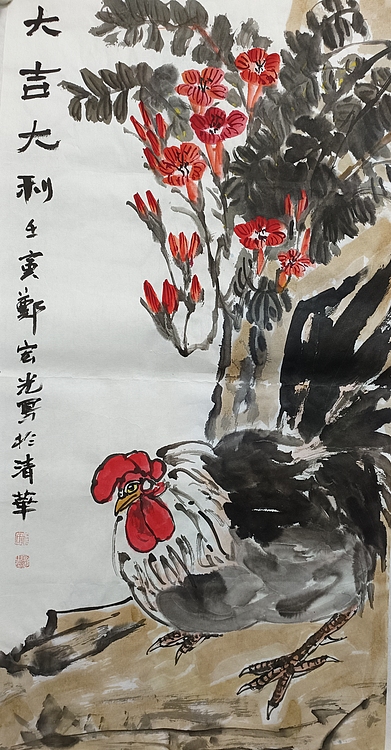 大吉大利壬寅鄭宏光寫於清華